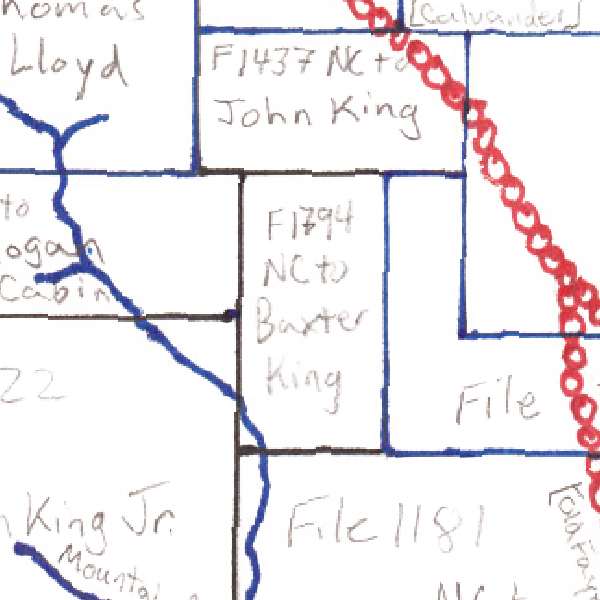 homas
Lloyd
[Calvander]
F1437 NC to
John King
to
ogan
Cabin
F1794
NC to
Baxter
King
22
File
King Jr.
Mountai
File 1181
NC t